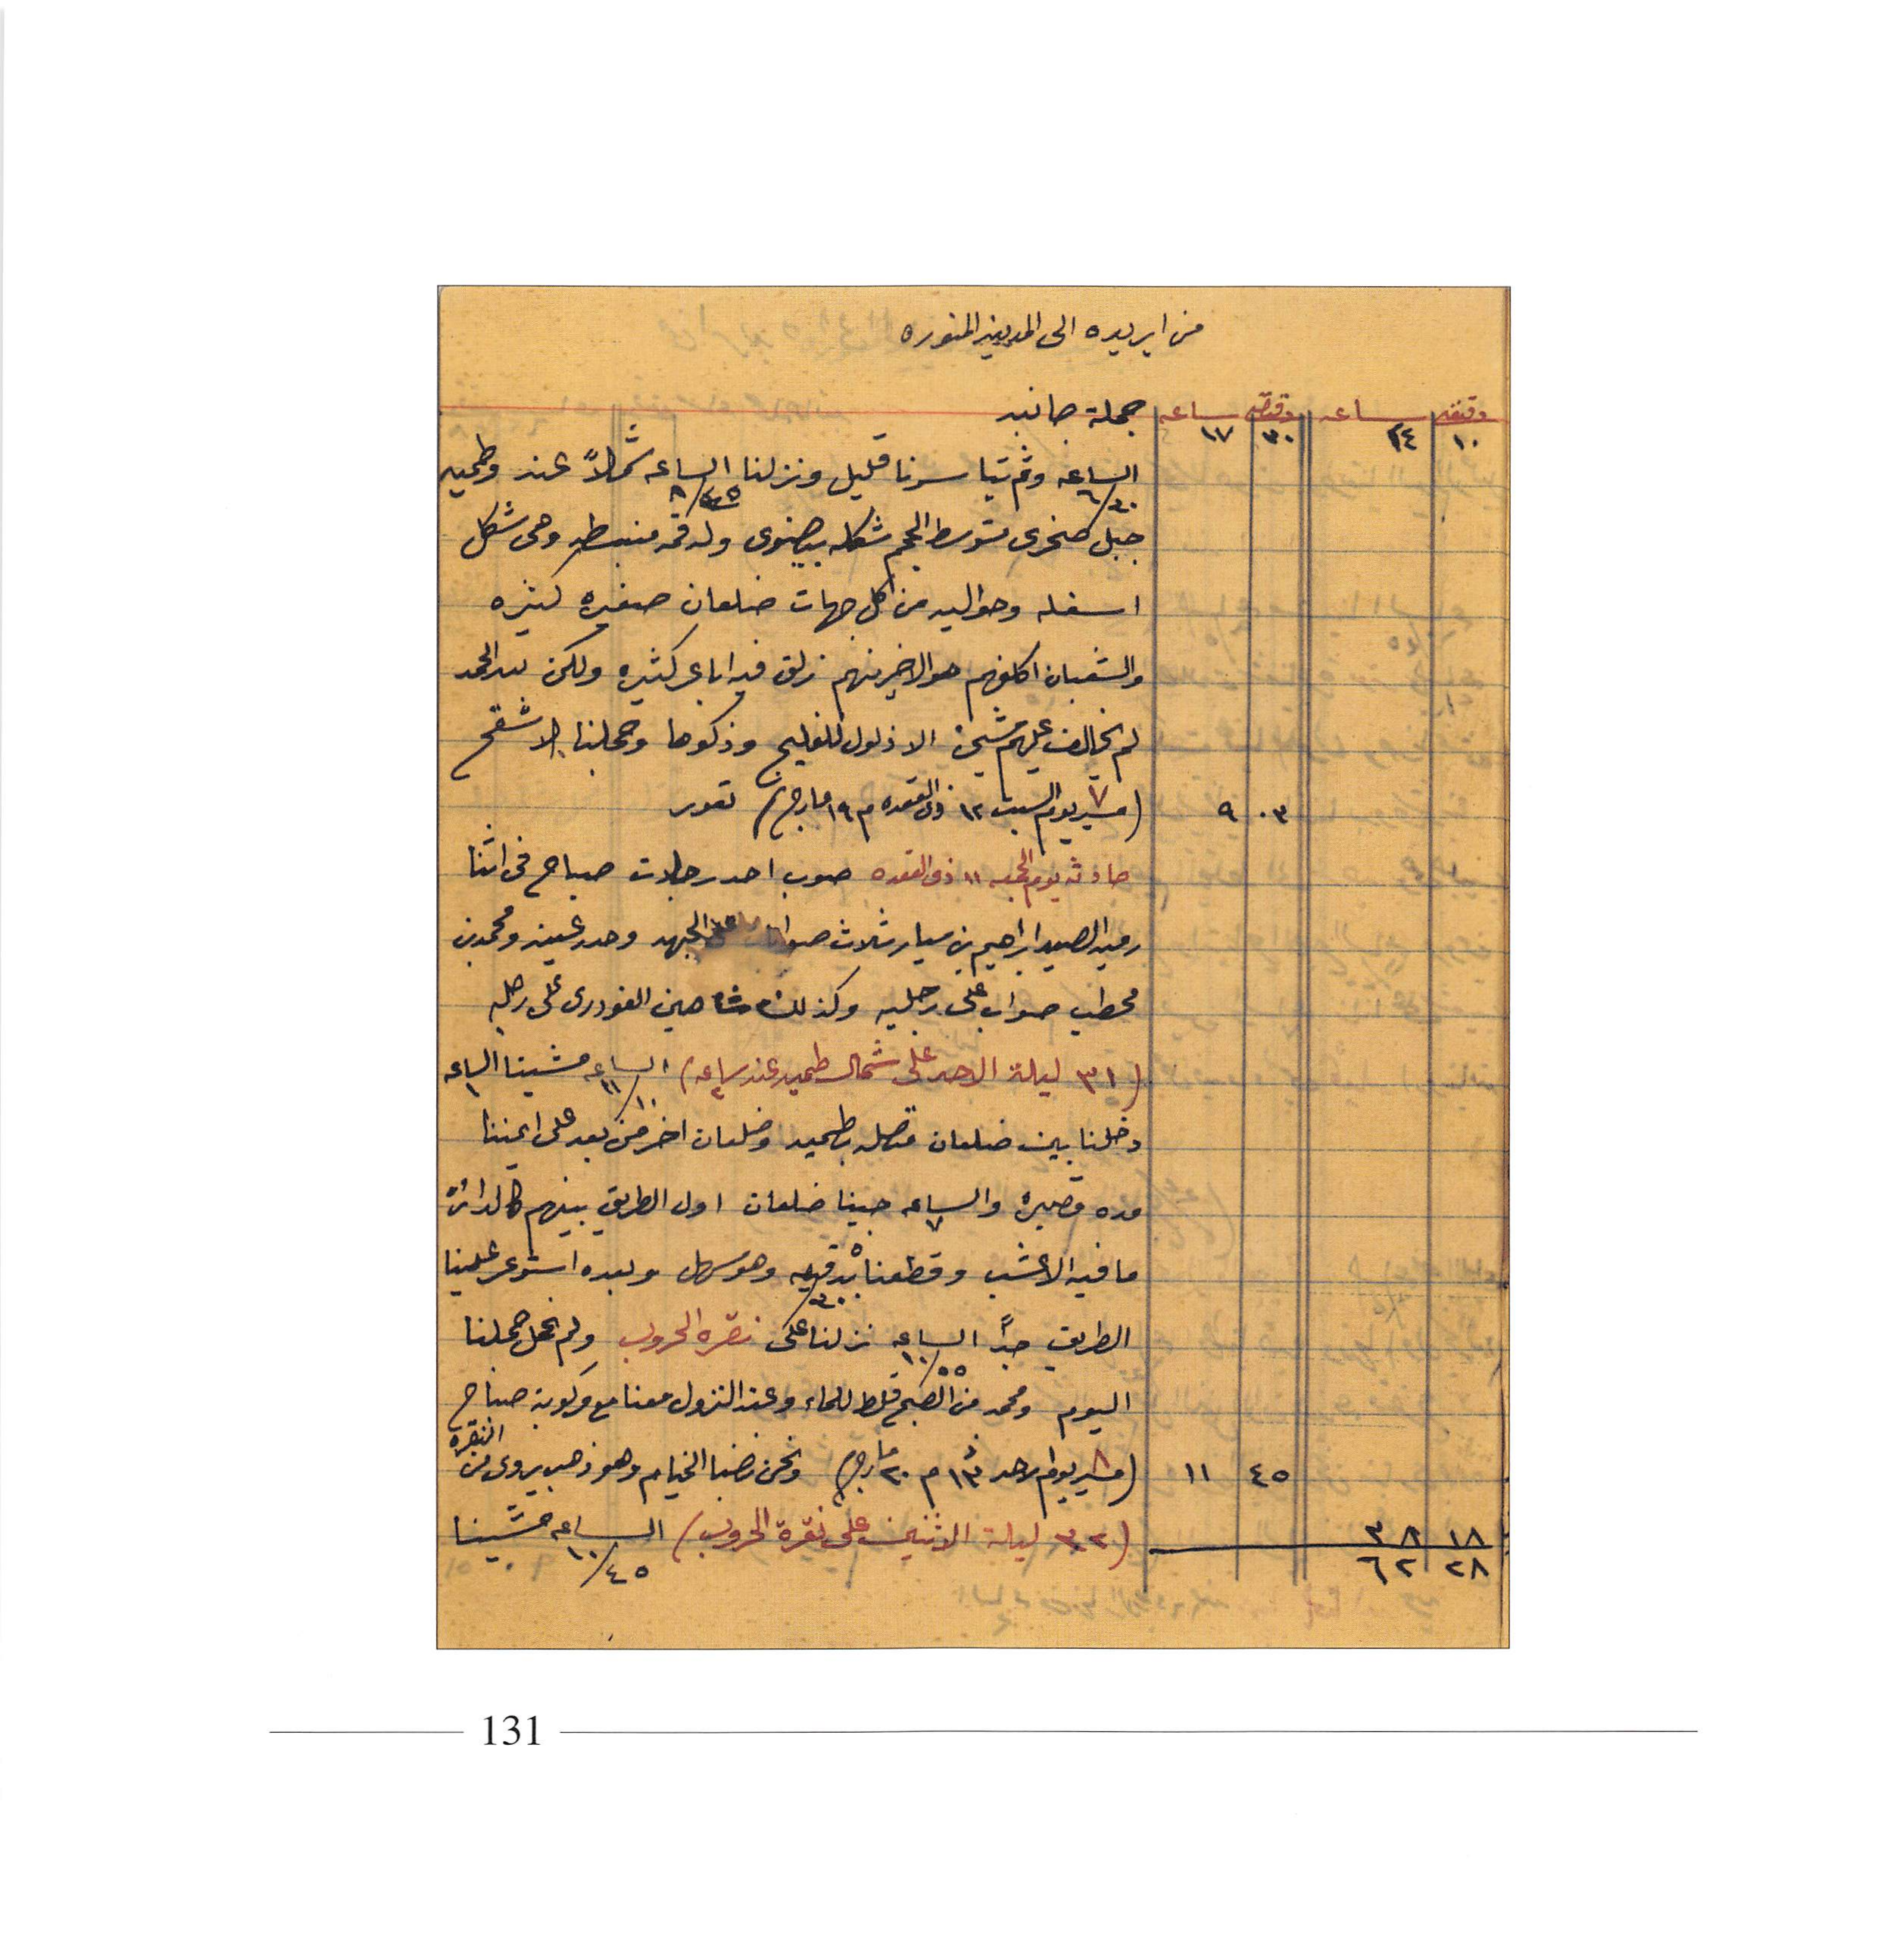 من ابريده الى المدينه المنوره
دقيقه ساعه دقيقه ساعه جملة جانبه
١٠ ٢٤ ٣٠ ١٧
الساعه ٦/٢٠ وثم تياسرنا قليل ونزلنا الساعه ٨/٤٥ شمالاً عند وطميه
جبل صخرى متوسط الحجم شكله بيضوى وله قمه منبسطه وهى شكل
اسفله وحواليه من كل جهات ضلعان صغيره كثيره
والشعبان اكلفهم هو الاخير منهم زلق فيه اباعر كثيره ولكن لله الحمد
لم يخالف عليهم شىء الا ذلول للفليج وذكوها وجملنا الاشقح
٠٣ ٩ (٧ مسير يوم السبت ١٢ ذى القعده م ١٩ مارج) تعور
حادثه يوم الجمعه ١١ ذى القعده صوب احد رجلات صباح فى اثنا
رميه الصيد ابراهيم بن سيار ثلاث صوابات على الجبهه وحدر عينه ومحمد بن
محطب صواب على رجليه وكذلك شاهين الغودرى على رجله
(٣١ ليلة الاحد على شمال طميه عند ساعه ٢) الساعه ١١/١٠ مشينا الساعه ١
دخلنا بين ضلعان متصله بطميه وضلعان اخر من بعد على ايمننا
مده قصيره والساعه ٧ جينا ضلعان اول الطريق بينهم كالدائرة
ما فيه الا عشب وقطعناه بـ ٢٠ دقيقه وهو سهل وبعده استوعر علينا
الطريق جداً الساعه ١٠/٥٥ نزلنا على نقره الحروب ولم نحمل جملنا
اليوم ومحمد من الصبح قلط للماء وعند النزول معنا مع ركوبة صباح
٤٥ ١١ (٨ مسير يوم الاحد ١٣ م ٢٠ مارج) ونحن نضبنا الخيام وهو ذهب يروى من النقره
١٨ ٣٨ (٣٢ ليلة الاثنين على نقرة الحروب) الساعه ١٠/٤٥ مشينا
٢٨ ٦٢
131